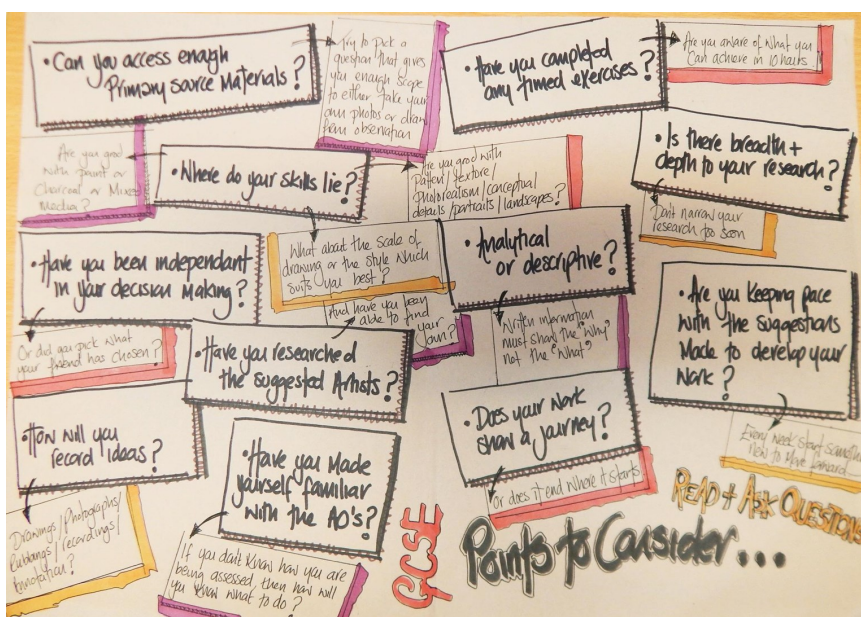 • Can you access enough
Primary source Materials?
Try to pick a
question that gives
you enough scope
to either take your
own photos or draw
from observation
• Have you completed
any timed exercises?
Are you aware of what you
Can achieve in 10 hours.
Are you good
with paint or
Charcoal or Mixed
Media?
• Where do your skills lie?
Are you good with
Pattern/texture/
photorealism/conceptual
details/portraits/landscapes?
• Is there breadth +
depth to your research?
Don't narrow your
research too soon
• Have you been independant
in your decision making?
What about the scale of
drawing or the style which
suits you best?
• Analytical
or descriptive?
Or did you pick what
your friend has chosen?
• Have you researched
the suggested Artists?
And have you been
able to find
your
own?
Written information
must show the "Why"
not the "What"
• Are you keeping pace
with the suggestions
Made to develop your
Work?
Every week start
new to Move forward
• How will you
record ideas?
Drawings/Photographs/
Rubbings/recordings/
Annotation?
• Have you Made
yourself familiar
with the AO's?
If you don't know how you are
being assessed, then how will
you know what to do?
• Does your work
show a journey?
Or does it end where it starts
GCSE
Points to Consider...
READ + ASK QUESTIONS